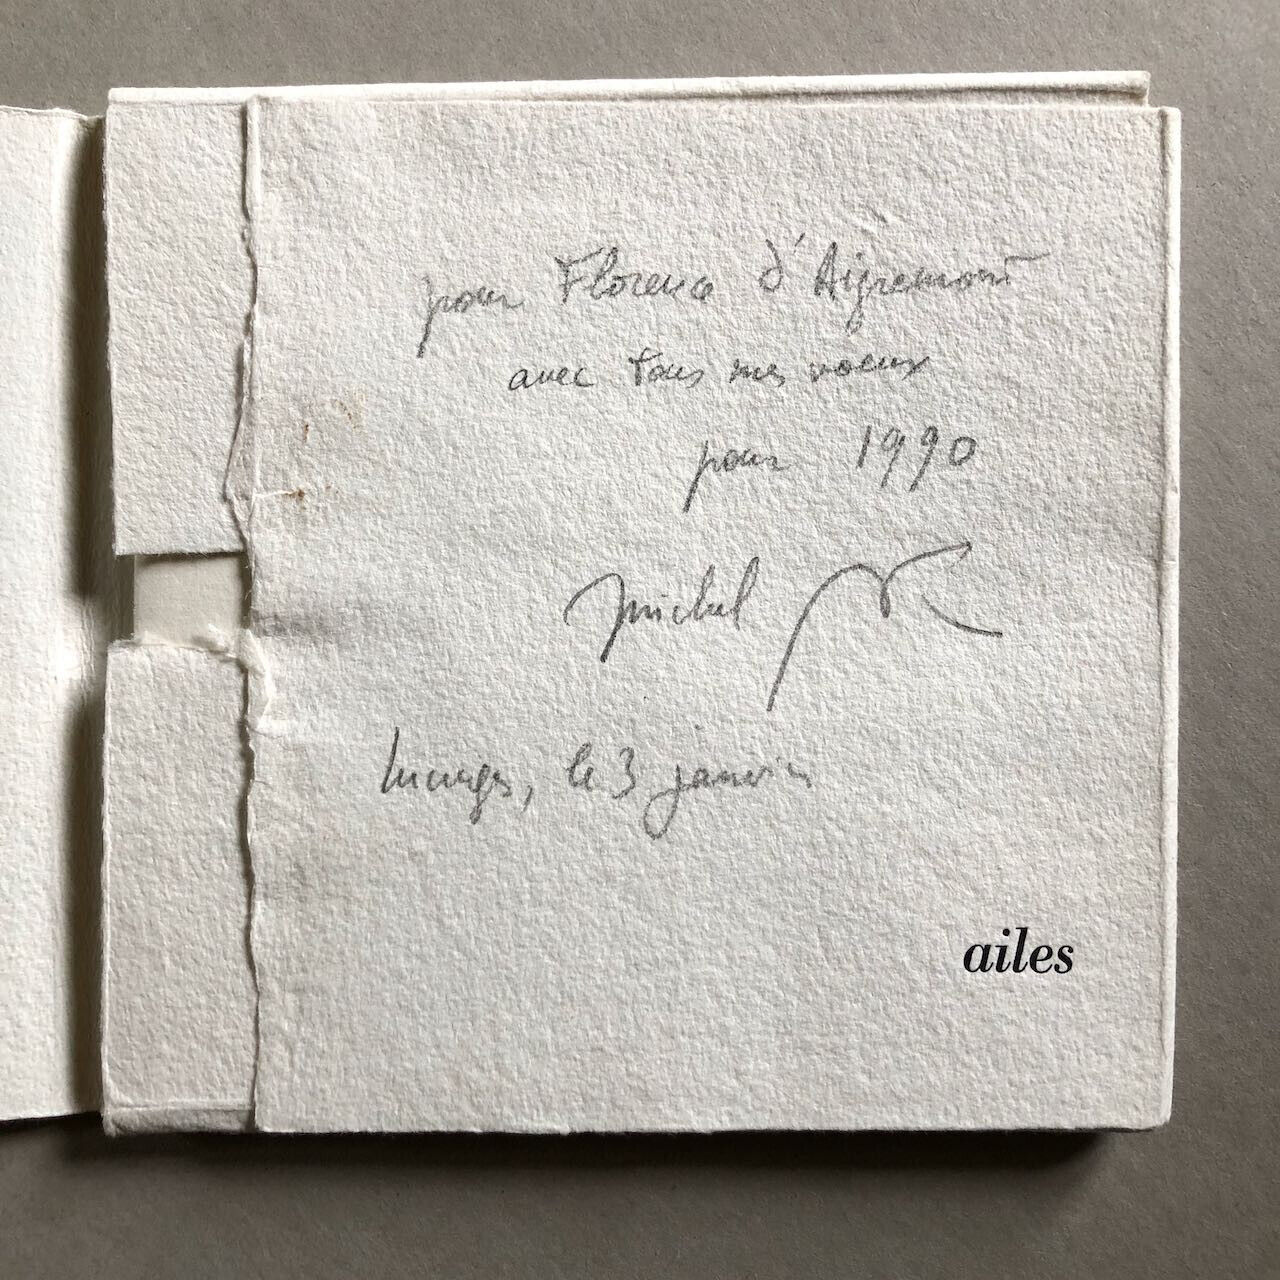 pour Florence d'Aigremont
avec tous mes voeux
pour 1990
Michel
Lucinges, le 3 janvier
ailes